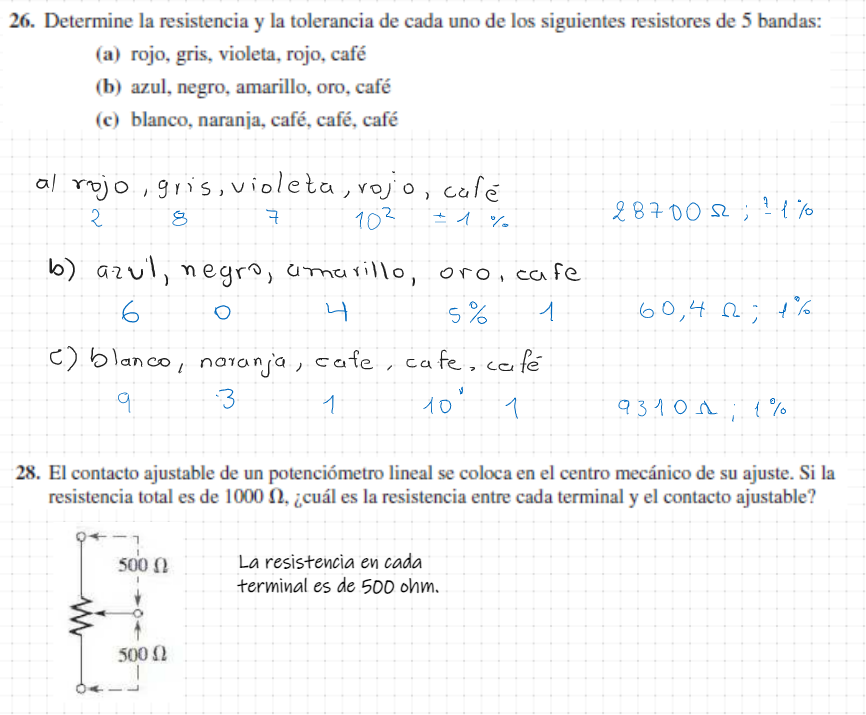 26. Determine la resistencia y la tolerancia de cada uno de los siguientes resistores de 5 bandas:
(a) rojo, gris, violeta, rojo, café
(b) azul, negro, amarillo, oro, café
(c) blanco, naranja, café, café, café
a) rojo, gris, violeta, rojo, café
2 8 7 10² ± 1 % 28700 Ω ; ± 1 %
b) azul, negro, amarillo, oro, cafe
6 0 4 5% 1 60,4 Ω ; 1%
c) blanco, naranja, cafe, cafe, café
9 3 1 10¹ 1 9310 Ω ; 1%
28. El contacto ajustable de un potenciómetro lineal se coloca en el centro mecánico de su ajuste. Si la
resistencia total es de 1000 Ω, ¿cuál es la resistencia entre cada terminal y el contacto ajustable?
500 Ω
La resistencia en cada
terminal es de 500 ohm.
500 Ω